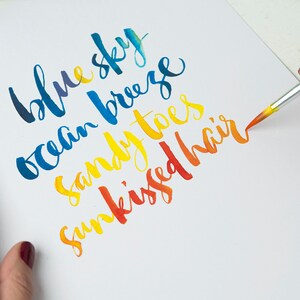 blue sky
ocean breeze
sandy toes
sunkissed hair